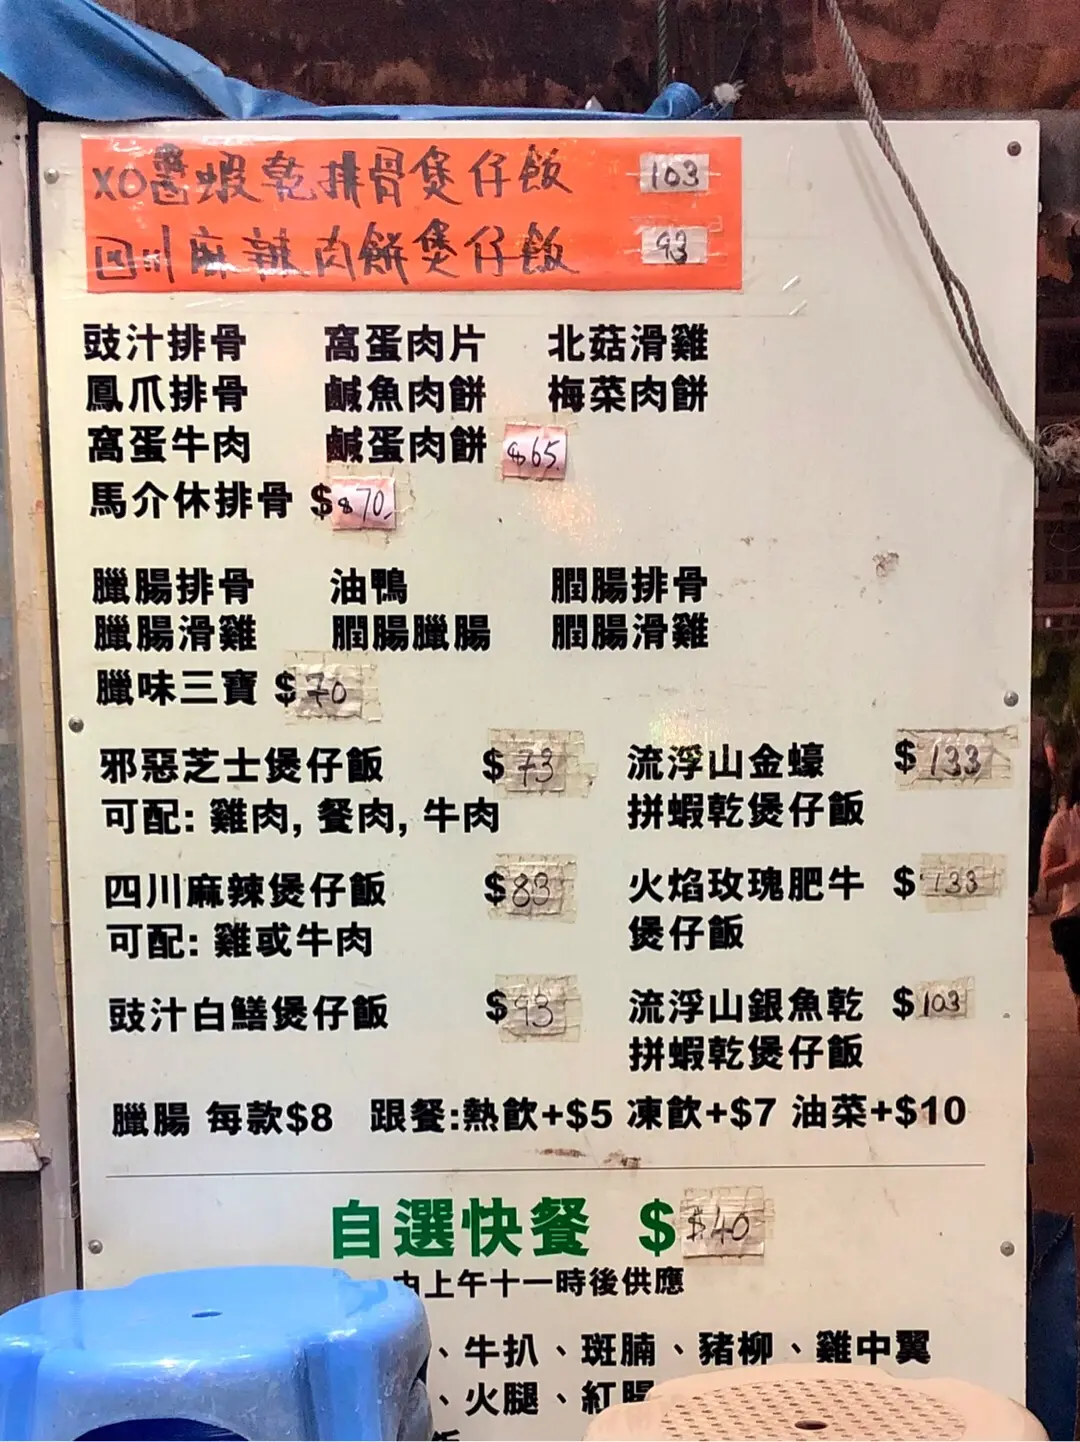 XO醬蝦乾排骨煲仔飯 103
四川麻辣肉餅煲仔飯 93
豉汁排骨 窩蛋肉片 北菇滑雞
鳳爪排骨 鹹魚肉餅 梅菜肉餅
窩蛋牛肉 鹹蛋肉餅 $65
馬介休排骨 $ $70
臘腸排骨 油鴨 膶腸排骨
臘腸滑雞 膶腸臘腸 膶腸滑雞
臘味三寶 $70
邪惡芝士煲仔飯 $73
可配: 雞肉, 餐肉, 牛肉
流浮山金蠔 $133
拼蝦乾煲仔飯
四川麻辣煲仔飯 $83
可配: 雞或牛肉
火焰玫瑰肥牛 $133
煲仔飯
豉汁白鱔煲仔飯 $93
流浮山銀魚乾 $103
拼蝦乾煲仔飯
臘腸 每款$8 跟餐:熱飲+$5 凍飲+$7 油菜+$10
自選快餐 $ $40
由上午十一時後供應
、牛扒、斑腩、豬柳、雞中翼
、火腿、紅腸